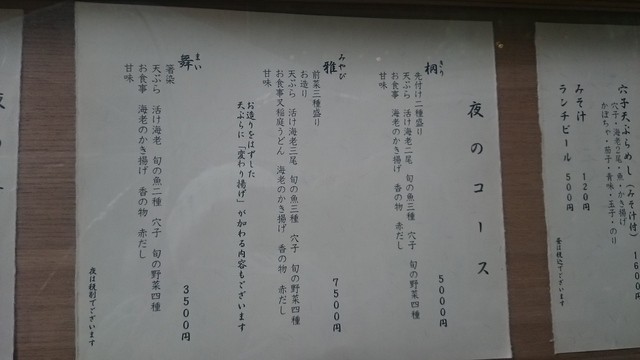 穴子天ぷらめし(みそ汁付)
穴子・海老2尾・魚・かき揚げ
かぼちゃ・茄子・青味・玉子・のり
1600円
みそ汁 120円
ランチビール 500円
昼は税込でございます
夜のコース
桐 きり
先付け二種盛り
天ぷら 活け海老二尾 旬の魚三種 穴子 旬の野菜四種
お食事 海老のかき揚げ 香の物 赤だし
甘味
5000円
雅 みやび
前菜三種盛り
お造り
天ぷら 活け海老三尾 旬の魚三種 穴子 旬の野菜四種
お食事又稲庭うどん 海老のかき揚げ 香の物 赤だし
甘味
7500円
お造りをはずした
天ぷらに「変わり揚げ」が加わる内容もございます
舞 まい
箸染
天ぷら 活け海老 旬の魚二種 穴子 旬の野菜四種
お食事 海老のかき揚げ 香の物 赤だし
甘味
3500円
夜は税別でございます